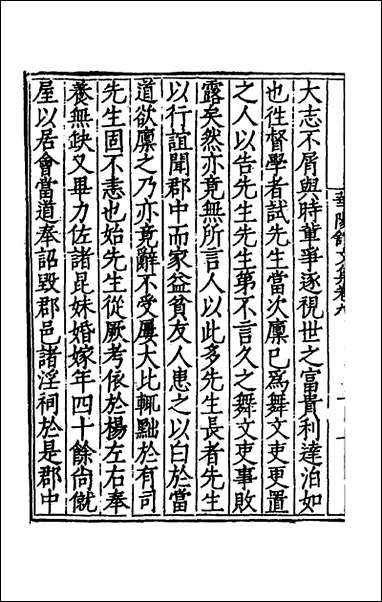 大志不屑與時童爭逐視世之富貴利達泊如
也徃督學者試先生當次廩已爲舞文吏更置
之人以告先生先生第不言久之舞文吏事敗
露矣然亦竟無所言人以此多先生長者先生
以行誼聞郡中而家益貧友人患之以白於當
道欲廩之乃亦竟辭不受屢大比輒黜於有司
先生固不恚也始先生從厥考依於楊左右奉
養無缺又畢力佐諸昆妹婚嫁年四十餘尙僦
屋以居會當道奉詔毀郡邑諸淫祠於是郡中